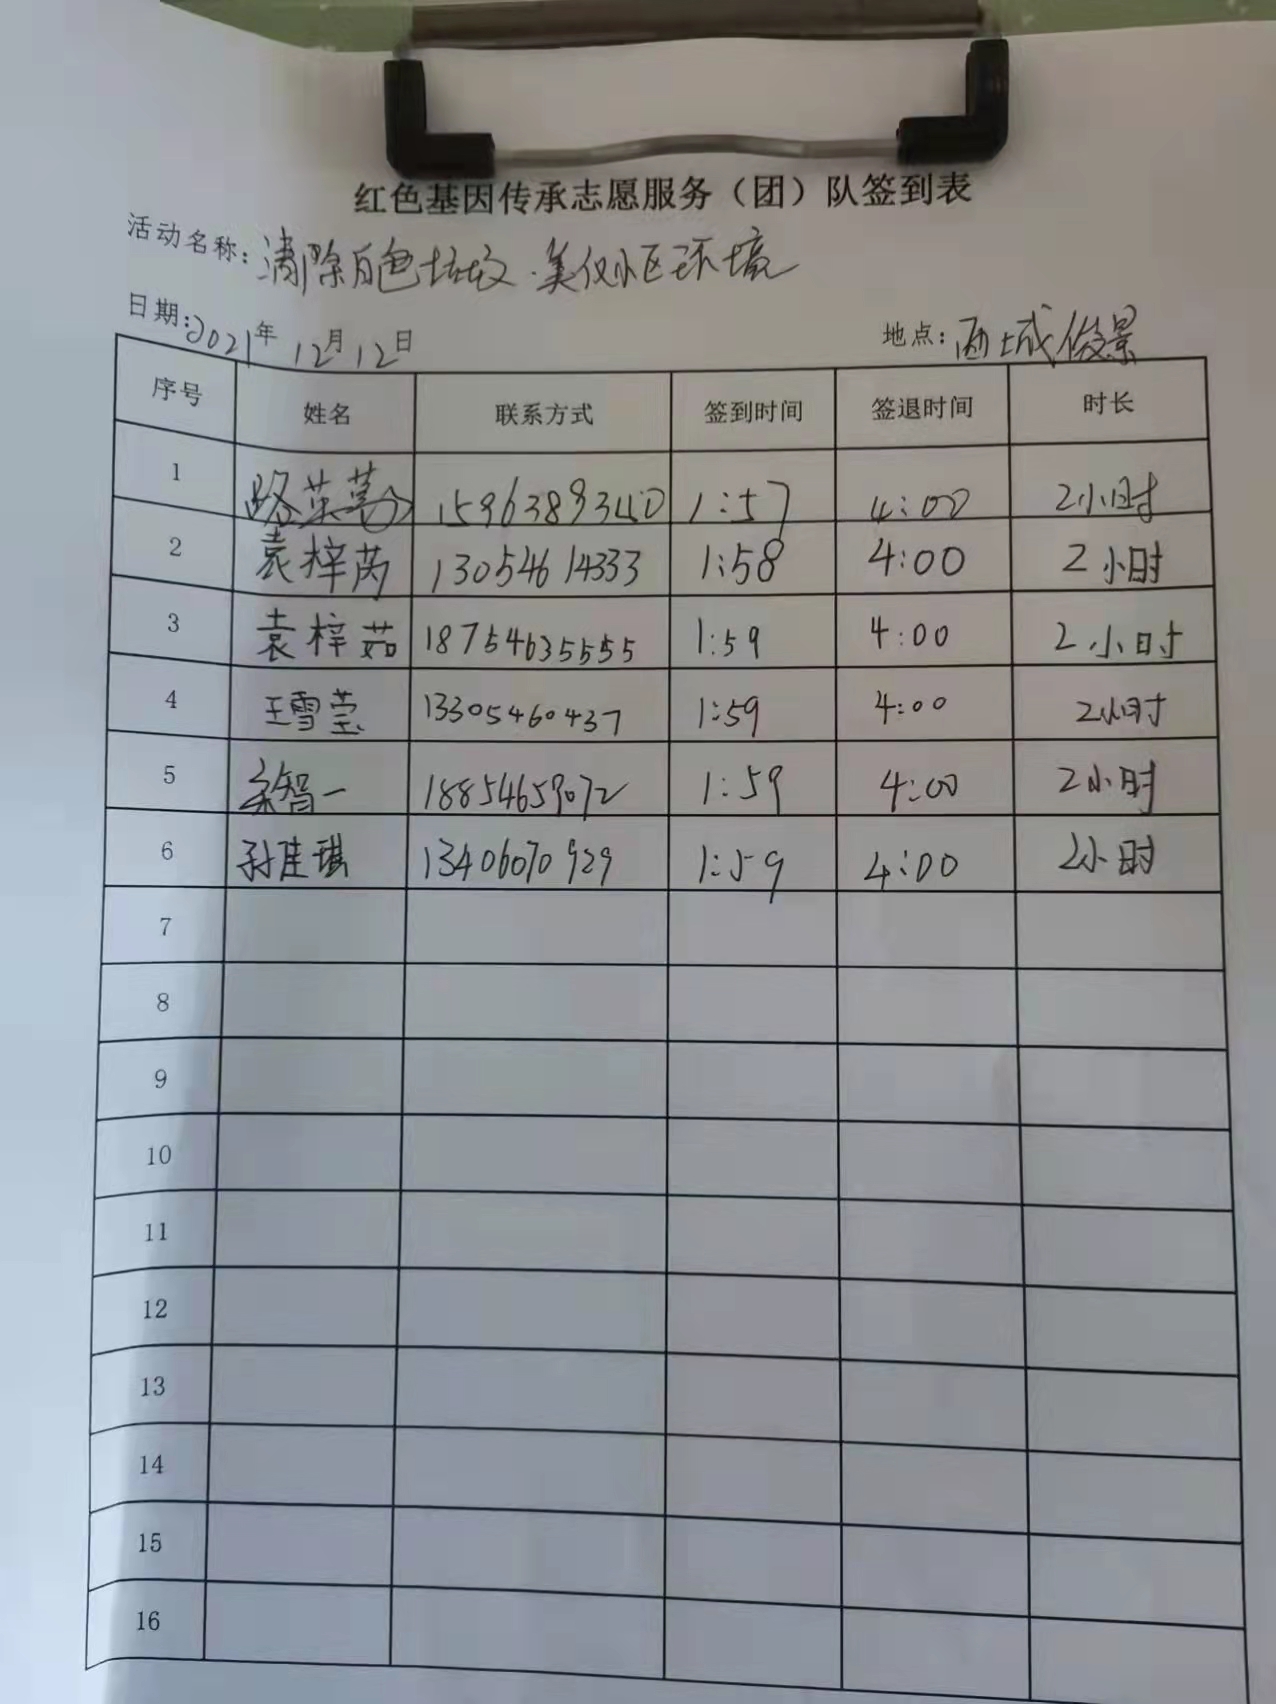 红色基因传承志愿服务（团）队签到表
活动名称：清除白色垃圾·美化小区环境
日期：2021年12月12日 地点：西城俊景
序号 姓名 联系方式 签到时间 签退时间 时长
1 路英 1:57 4:00 2小时
2 袁梓芮 13054614333 1:58 4:00 2小时
3 袁梓茹 18754635555 1:59 4:00 2小时
4 王雪莹 13305460437 1:59 4:00 2小时
5 智一 18854659072 1:59 4:00 2小时
6 孙佳琪 13406070929 1:59 4:00 2小时
7
8
9
10
11
12
13
14
15
16